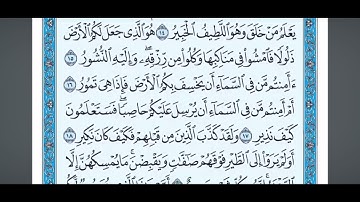 يَعۡلَمُ مَنۡ خَلَقَ وَهُوَ ٱللَّطِيفُ ٱلۡخَبِيرُ ١٤ هُوَ ٱلَّذِي جَعَلَ لَكُمُ ٱلۡأَرۡضَ
ذَلُولٗا فَٱمۡشُواْ فِي مَنَاكِبِهَا وَكُلُواْ مِن رِّزۡقِهِۦۖ وَإِلَيۡهِ ٱلنُّشُورُ ١٥
ءَأَمِنتُم مَّن فِي ٱلسَّمَآءِ أَن يَخۡسِفَ بِكُمُ ٱلۡأَرۡضَ فَإِذَا هِيَ تَمُورُ ١٦
أَمۡ أَمِنتُم مَّن فِي ٱلسَّمَآءِ أَن يُرۡسِلَ عَلَيۡكُمۡ حَاصِبٗاۖ فَسَتَعۡلَمُونَ
كَيۡفَ نَذِيرِ ١٧ وَلَقَدۡ كَذَّبَ ٱلَّذِينَ مِن قَبۡلِهِمۡ فَكَيۡفَ كَانَ نَكِيرِ ١٨
أَوَلَمۡ يَرَوۡاْ إِلَى ٱلطَّيۡرِ فَوۡقَهُمۡ صَٰٓفَّٰتٖ وَيَقۡبِضۡنَۚ مَا يُمۡسِكُهُنَّ إِلَّا